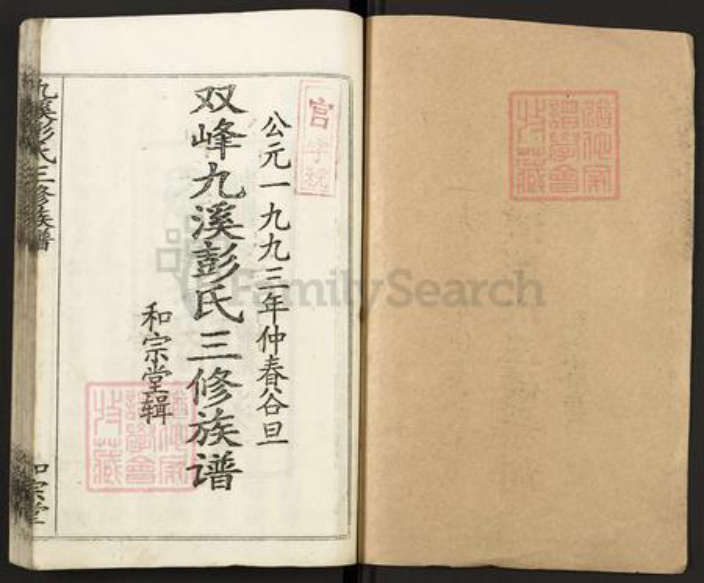 公元一九九三年仲春谷旦
双峰九溪彭氏三修族谱
和宗堂辑
宫字号
九溪彭氏三修族谱
和宗堂
FamilySearch